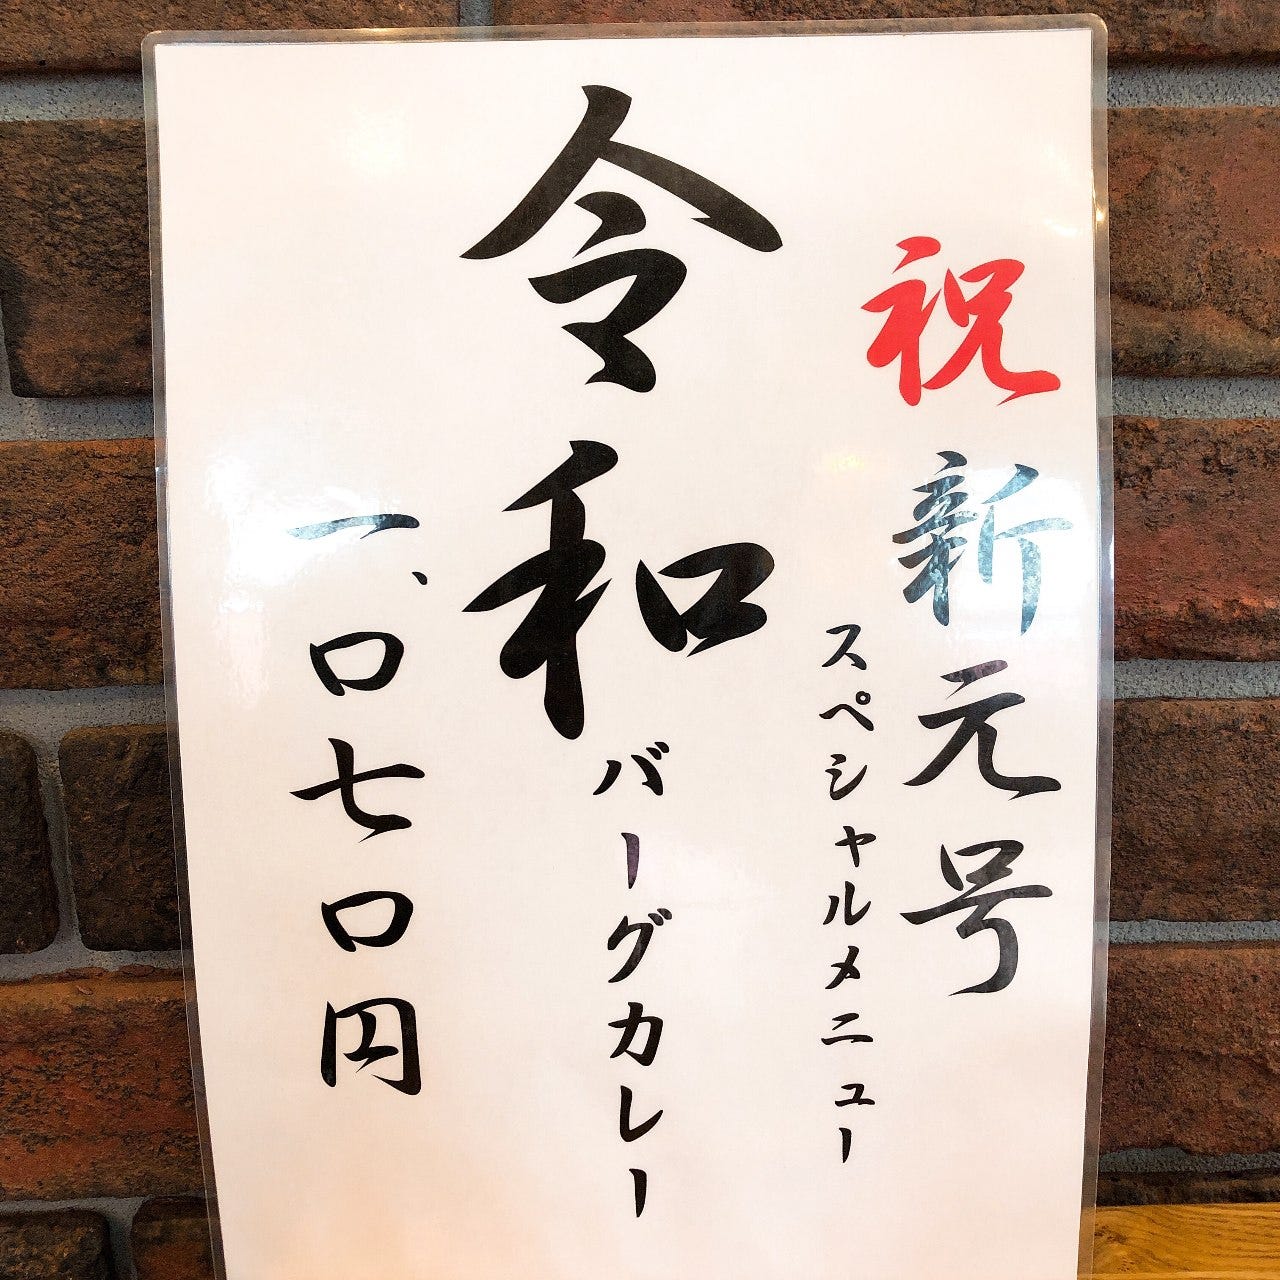 祝新元号
スペシャルメニュー
令和バーグカレー
一、〇七〇円